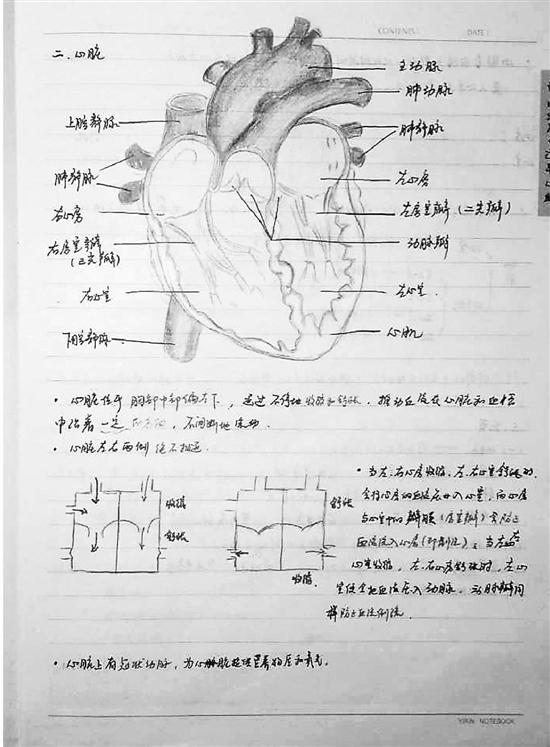 CONTENTS: DATE:
二.心脏
主动脉
肺动脉
上腔静脉
肺静脉
肺静脉
左心房
右心房
左房室瓣(二尖瓣)
右房室瓣
(三尖瓣)
动脉瓣
右心室
左心室
下腔静脉
心肌
·心脏位于胸部中部偏左下,通过不停地收缩和舒张,推动血液在心脏和血管
中沿着一定的方向,不间断地流动.
·心脏左右两侧绝不相通.
收缩
舒张
舒张
收缩
·当左.右心房收缩,左.右心室舒张时,
会将心房的血液压入心室,而心房
与心室中的瓣膜(房室瓣)会防止
血液流入心房(即倒流);当左.右
心室收缩,左.右心房舒张时,左心
室便会把血液压入动脉,动脉瓣
防止血液倒流.
·心脏上有冠状动脉,为心脏提供营养物质和氧气.
YIXIN NOTEBOOK